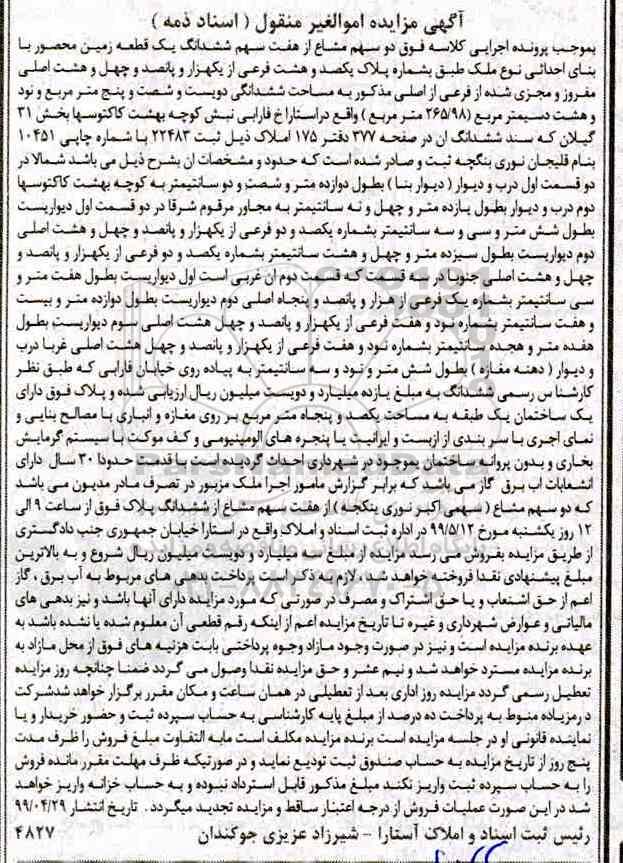 آگهی مزایده اموالغیر منقول ( اسناد ذمه )
بموجب پرونده اجرایی کلاسه فوق دو سهم مشاع از هفت سهم ششدانگ یک قطعه زمین محصور با
بنای احداثی نوع ملک طبق بشماره پلاک یکصد و هشت فرعی از یکهزار و پانصد و چهل و هشت اصلی
مفروز و مجزی شده از فرعی از اصلی مذکور به مساحت ششدانگی دویست و شصت و پنج متر مربع و نود
و هشت دسیمتر مربع (۲۶۵/۹۸ متر مربع ) واقع دراستارا خ فارابی نبش کوچه بهشت کاکتوسها بخش ۳۱
گیلان که سند ششدانگ ان در صفحه ۳۷۷ دفتر ۱۷۵ املاک ذیل ثبت ۲۲۴۸۳ با شماره چاپی ۱۰۴۵۱
بنام قلیجان نوری بنگچه ثبت و صادر شده است که حدود و مشخصات ان بشرح ذیل می باشد شمالا در
دو قسمت اول درب و دیوار ( دیوار بنا ) بطول دوازده متر و شصت و دو سانتیمتر به کوچه بهشت کاکتوسها
دوم درب و دیوار بطول یازده متر و چهل و نه سانتیمتر به مجاور مرقوم شرقا در دو قسمت اول دیواریست
بطول شش متر و سی و سه سانتیمتر بشماره یکصد و دو فرعی از یکهزار و پانصد و چهل و هشت اصلی
دوم دیواریست بطول سیزده متر و چهل و هشت سانتیمتر بشماره یکصد و دو فرعی از یکهزار و پانصد و
چهل و هشت اصلی جنوبا در سه قسمت که قسمت دوم ان غربی است اول دیواریست بطول هفت متر و
سی سانتیمتر بشماره یک فرعی از هزار و پانصد و پنجاه اصلی دوم دیواریست بطول دوازده متر و بیست
و هفت سانتیمتر بشماره نود و هفت فرعی از یکهزار و پانصد و چهل هشت اصلی سوم دیواریست بطول
هفده متر و هجده سانتیمتر بشماره نود و هفت فرعی از یکهزار و پانصد و چهل هشت اصلی غربا درب
و دیوار ( دهنه مغازه ) بطول شش متر و نود و سه سانتیمتر به پیاده روی خیابان فارابی که طبق نظر
کارشناس رسمی ششدانگ به مبلغ یازده میلیارد و دویست میلیون ریال ارزیابی شده و پلاک فوق دارای
یک ساختمان یک طبقه به مساحت یکصد و پنجاه متر مربع بر روی مغازه و انباری با مصالح بنایی و
نمای اجری با سر بندی از ازبست و ایرانیت با پنجره های الومینیومی و کف موکت با سیستم گرمایش
بخاری و بدون پروانه ساختمان بموجود در شهرداری احداث گردیده است با قدمت حدودا ۳۰ سال دارای
انشعابات اب برق گاز می باشد که برابر گزارش مامور اجرا ملک مزبور در تصرف مادر مدیون می باشد
که دو سهم مشاع ( سهمی اکبر نوری بنگچه ) از هفت سهم مشاع از ششدانگ پلاک فوق از ساعت ۹ الی
۱۲ روز یکشنبه مورخ ۹۹/۵/۱۲ در اداره ثبت اسناد و املاک واقع در استارا خیابان جمهوری جنب دادگستری
از طریق مزایده بفروش می رسد مزایده از مبلغ سه میلیارد و دویست میلیون ریال شروع و به بالاترین
مبلغ پیشنهادی نقدا فروخته خواهد شد ، لازم به ذکر است پرداخت بدهی های مربوط به آب برق ، گاز
اعم از حق انشعاب و یا حق اشتراک و مصرف در صورتی که مورد مزایده دارای آنها باشد و نیز بدهی های
مالیاتی و عوارض شهرداری و غیره تا تاریخ مزایده اعم از اینکه رقم قطعی آن معلوم شده یا نشده باشد به
عهده برنده مزایده است و نیز در صورت وجود مازاد وجوه پرداختی بابت هزنیه های فوق از محل مازاد به
برنده مزایده مسترد خواهد شد و نیم عشر و حق مزایده نقدا وصول می گردد ضمنا چنانچه روز مزایده
تعطیل رسمی گردد مزایده روز اداری بعد از تعطیلی در همان ساعت و مکان مقرر برگزار خواهد شدشرکت
د رمزیاده منوط به پرداخت ده درصد از مبلغ پایه کارشناسی به حساب سپرده ثبت و حضور خریدار و یا
نماینده قانونی او در جلسه مزایده است برنده مزایده مکلف است مابه التفاوت مبلغ فروش را ظرف مدت
پنج روز از تاریخ مزایده به حساب صندوق ثبت تودیع نماید و در صورتیکه ظرف مهلت مقرر مانده فروش
را به حساب سپرده ثبت واریز نکند مبلغ مذکور قابل استرداد نبوده و به حساب خزانه واریز خواهد
شد در این صورت عملیات فروش از درجه اعتبار ساقط و مزایده تجدید میگردد . تاریخ انتشار ۹۹/۰۴/۲۹
رئیس ثبت اسناد و املاک آستارا - شیرزاد عزیزی جوکندان    ۴۸۲۷